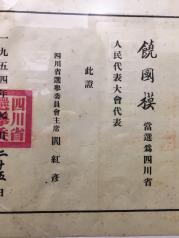 饒國模 當選爲四川省
人民代表大會代表
此證
四川省選舉委員會主席 閻紅彥
一九五四年
二十五日
四川省
選舉委